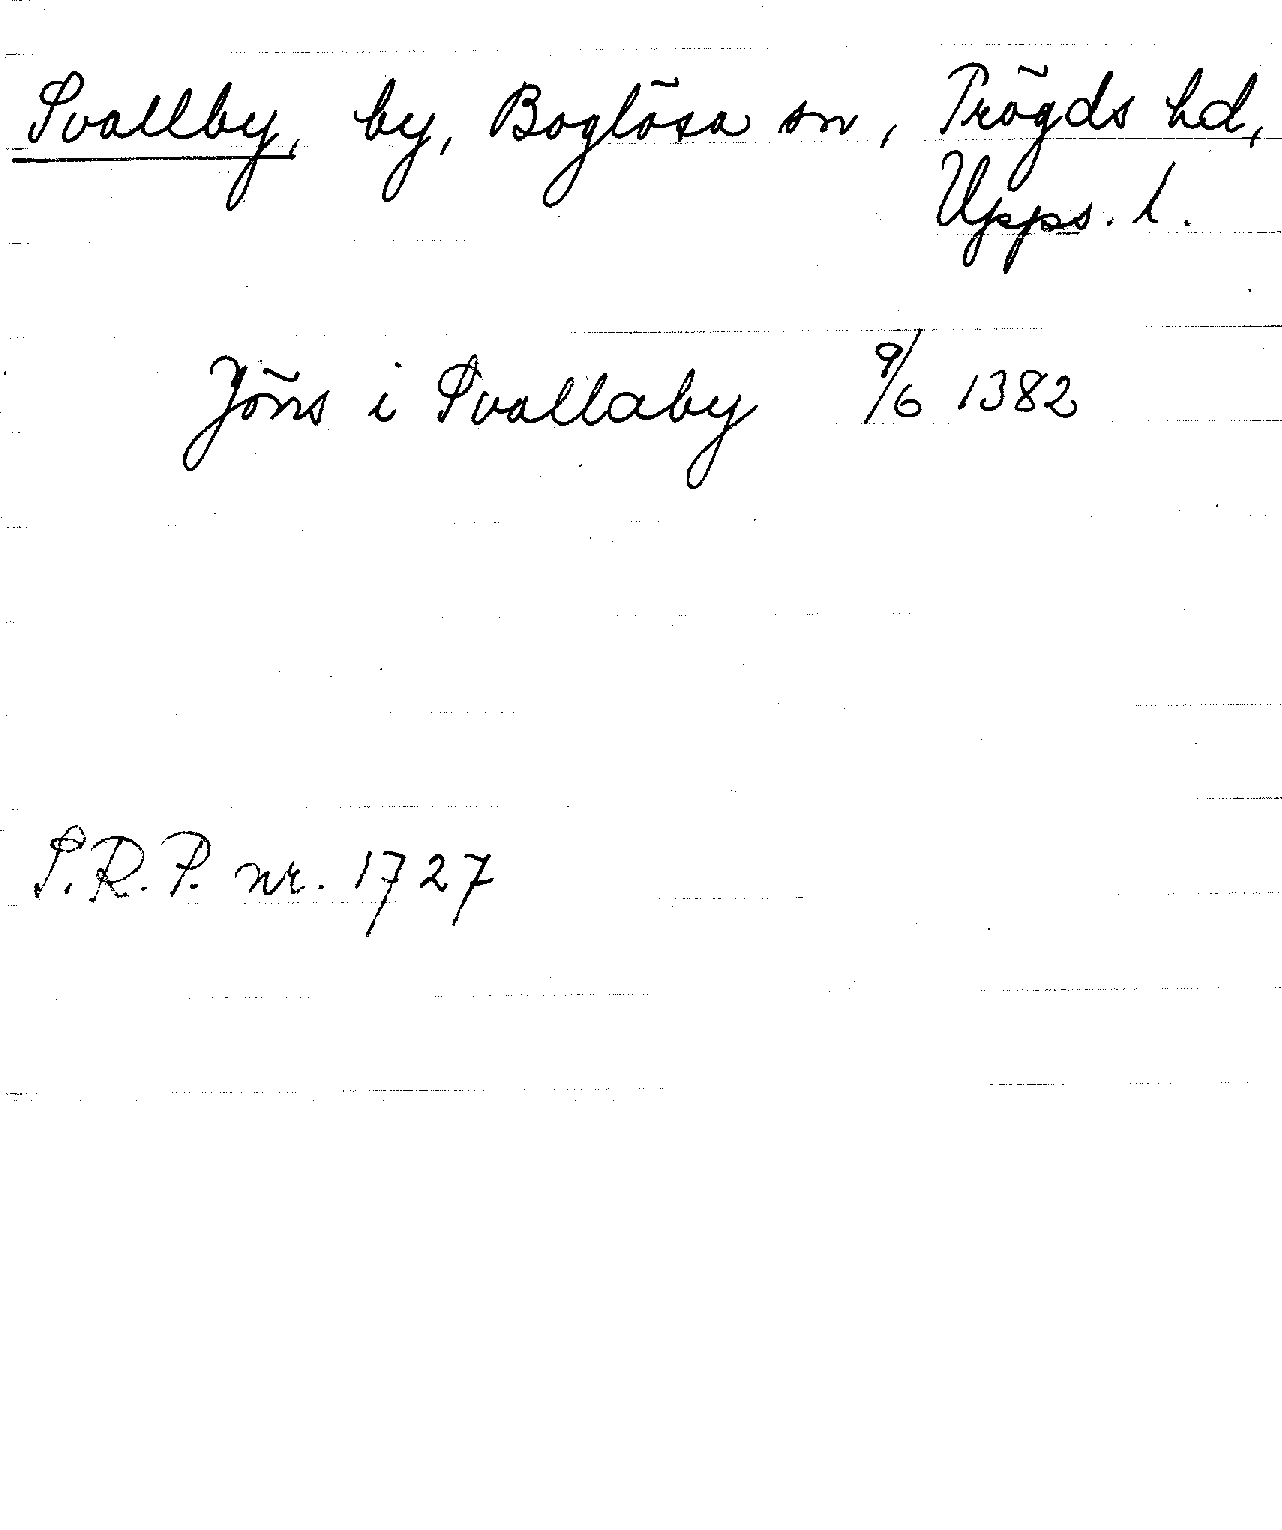 Svallby, by, Boglösa sn, Trögds hd,
Upps. l.
Jöns i Svallaby 9/6 1382
S.R.P. nr. 1727